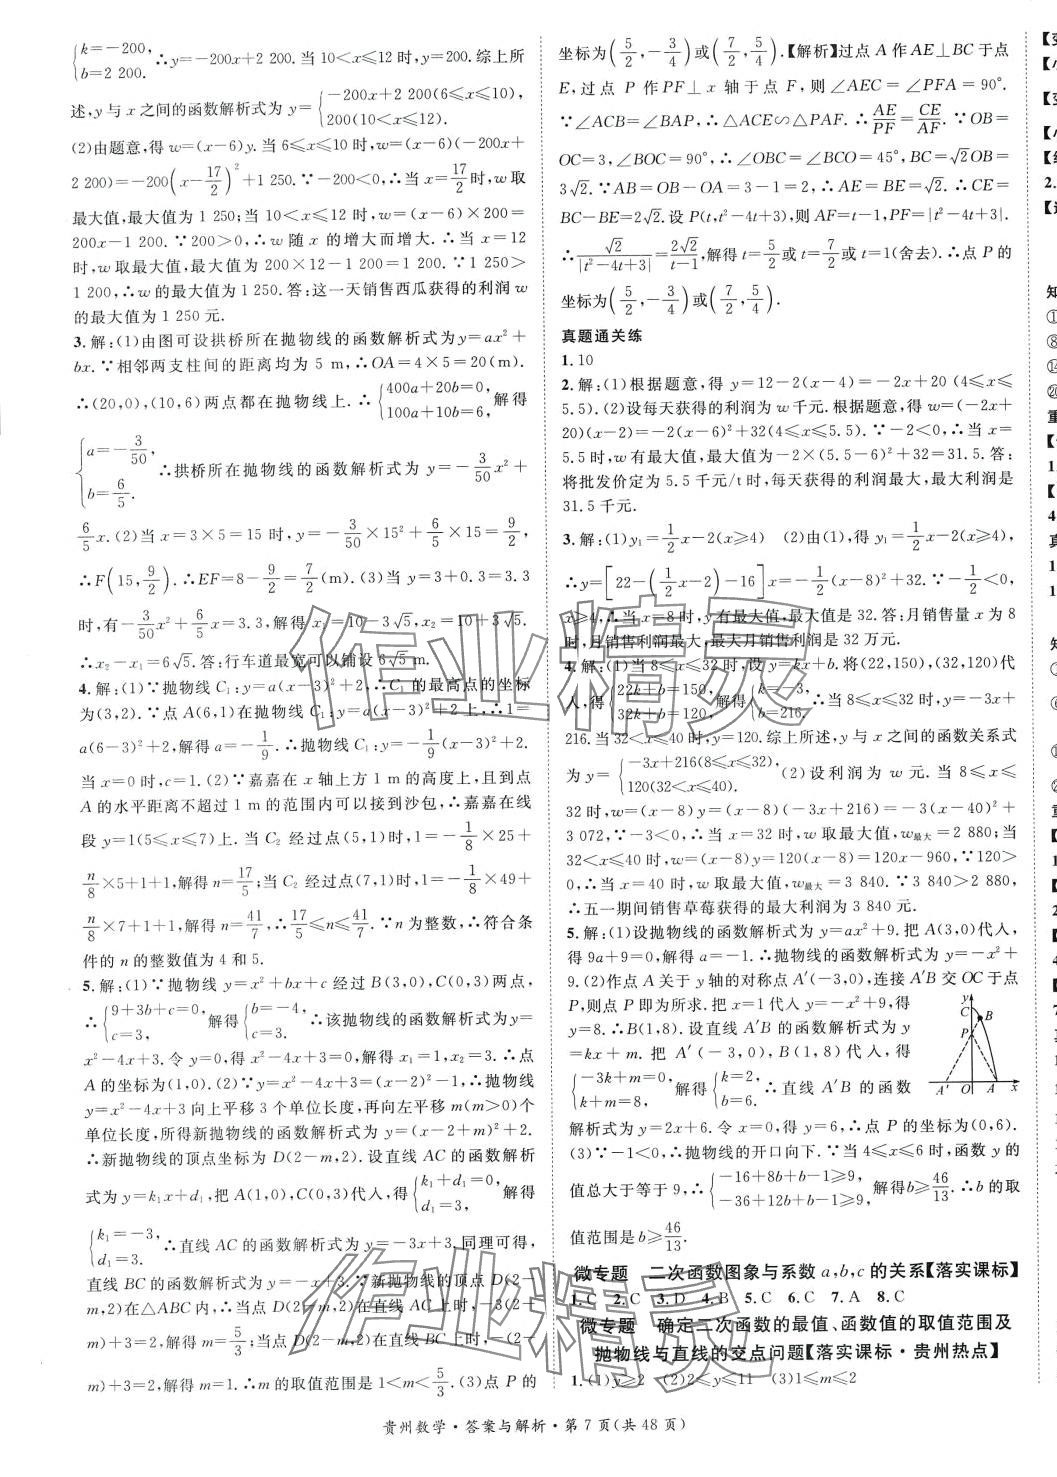 {k=-200, b=2 200. ∴y=-200x+2 200.当 10<x≤12 时,y=200.综上所
述,y 与 x 之间的函数解析式为 y={-200x+2 200(6≤x≤10), 200(10<x≤12).
(2)由题意,得 w=(x-6)y.当 6≤x≤10 时,w=(x-6)(-200x+
2 200)=-200(x-17/2)²+1 250.∵-200<0,∴当 x=17/2时,w 取
最大值,最大值为 1 250;当 10<x≤12 时,w=(x-6)×200=
200x-1 200.∵200>0,∴w 随 x 的增大而增大.∴当 x=12
时,w 取最大值,最大值为 200×12-1 200=1 200.∵1 250>
1 200,∴w 的最大值为 1 250.答:这一天销售西瓜获得的利润 w
的最大值为 1 250 元.
3.解:(1)由图可设拱桥所在抛物线的函数解析式为 y=ax²+
bx.∵相邻两支柱间的距离均为 5 m,∴OA=4×5=20(m).
∴(20,0),(10,6)两点都在抛物线上.∴{400a+20b=0, 100a+10b=6, 解得
{a=-3/50, b=6/5. ∴拱桥所在抛物线的函数解析式为 y=-3/50x²+
6/5x.(2)当 x=3×5=15 时,y=-3/50×15²+6/5×15=9/2,
∴F(15,9/2).∴EF=8-9/2=7/2(m).(3)当 y=3+0.3=3.3
时,有-3/50x²+6/5x=3.3,解得 x₁=10-3√5,x₂=10+3√5.
∴x₂-x₁=6√5.答:行车道最宽可以铺设 6√5 m.
4.解:(1)∵抛物线 C₁:y=a(x-3)²+2,∴C₁ 的最高点的坐标
为(3,2).∵点 A(6,1)在抛物线 C₁:y=a(x-3)²+2 上,∴1=
a(6-3)²+2,解得 a=-1/9.∴抛物线 C₁:y=-1/9(x-3)²+2.
当 x=0 时,c=1.(2)∵嘉嘉在 x 轴上方 1 m 的高度上,且到点
A 的水平距离不超过 1 m 的范围内可以接到沙包,∴嘉嘉在线
段 y=1(5≤x≤7)上.当 C₂ 经过点(5,1)时,1=-1/8×25+
n/8×5+1+1,解得 n=17/5;当 C₂ 经过点(7,1)时,1=-1/8×49+
n/8×7+1+1,解得 n=41/7,∴17/5≤n≤41/7.∵n 为整数,∴符合条
件的 n 的整数值为 4 和 5.
5.解:(1)∵抛物线 y=x²+bx+c 经过 B(3,0),C(0,3)两点,
∴{9+3b+c=0, c=3, 解得{b=-4, c=3. ∴该抛物线的函数解析式为 y=
x²-4x+3.令 y=0,得 x²-4x+3=0,解得 x₁=1,x₂=3.∴点
A 的坐标为(1,0).(2)∵y=x²-4x+3=(x-2)²-1,∴抛物线
y=x²-4x+3 向上平移 3 个单位长度,再向左平移 m(m>0)个
单位长度,所得新抛物线的函数解析式为 y=(x-2+m)²+2.
∴新抛物线的顶点坐标为 D(2-m,2).设直线 AC 的函数解析
式为 y=k₁x+d₁,把 A(1,0),C(0,3)代入,得{k₁+d₁=0, d₁=3, 解得
{k₁=-3, d₁=3. ∴直线 AC 的函数解析式为 y=-3x+3.同理可得,
直线 BC 的函数解析式为 y=-x+3.∵新抛物线的顶点 D(2-
m,2)在△ABC 内,∴当点 D(2-m,2)在直线 AC 上时,-3(2-
m)+3=2,解得 m=5/3;当点 D(2-m,2)在直线 BC 上时,-(2-
m)+3=2,解得 m=1.∴m 的取值范围是 1<m<5/3.(3)点 P 的
坐标为(5/2,-3/4)或(7/2,5/4).【解析】过点 A 作 AE⊥BC 于点
E,过点 P 作 PF⊥x 轴于点 F,则∠AEC=∠PFA=90°.
∵∠ACB=∠BAP,∴△ACE∽△PAF.∴AE/PF=CE/AF.∵OB=
OC=3,∠BOC=90°,∴∠OBC=∠BCO=45°,BC=√2OB=
3√2.∵AB=OB-OA=3-1=2,∴AE=BE=√2.∴CE=
BC-BE=2√2.设 P(t,t²-4t+3),则 AF=t-1,PF=|t²-4t+3|.
∴√2/|t²-4t+3|=2√2/(t-1),解得 t=5/2或 t=7/2或 t=1(舍去).∴点 P 的
坐标为(5/2,-3/4)或(7/2,5/4).
真题通关练
1.10
2.解:(1)根据题意,得 y=12-2(x-4)=-2x+20 (4≤x≤
5.5).(2)设每天获得的利润为 w 千元.根据题意,得 w=(-2x+
20)(x-2)=-2(x-6)²+32(4≤x≤5.5).∵-2<0,∴当 x=
5.5 时,w 有最大值,最大值为-2×(5.5-6)²+32=31.5.答:
将批发价定为 5.5 千元/t 时,每天获得的利润最大,最大利润是
31.5 千元.
3.解:(1)y₁=1/2x-2(x≥4) (2)由(1),得 y₁=1/2x-2(x≥4),
∴y=[22-(1/2x-2)-16]x=-1/2(x-8)²+32.∵-1/2<0,
x≥4,∴当 x=8 时,y 有最大值,最大值是 32.答:月销售量 x 为 8
时,月销售利润最大,最大月销售利润是 32 万元.
4.解:(1)当 8≤x≤32 时,设 y=kx+b.将(22,150),(32,120)代
人,得{22k+b=150, 32k+b=120, 解得{k=-3, b=216. ∴当 8≤x≤32 时,y=-3x+
216.当 32<x≤40 时,y=120.综上所述,y 与 x 之间的函数关系式
为 y={-3x+216(8≤x≤32), 120(32<x≤40). (2)设利润为 w 元.当 8≤x≤
32 时,w=(x-8)y=(x-8)(-3x+216)=-3(x-40)²+
3 072,∵-3<0,∴当 x=32 时,w 取最大值,w最大=2 880;当
32<x≤40 时,w=(x-8)y=120(x-8)=120x-960,∵120>
0,∴当 x=40 时,w 取最大值,w最大=3 840.∵3 840>2 880,
∴五一期间销售草莓获得的最大利润为 3 840 元.
5.解:(1)设抛物线的函数解析式为 y=ax²+9.把 A(3,0)代入,
得 9a+9=0,解得 a=-1.∴抛物线的函数解析式为 y=-x²+
9.(2)作点 A 关于 y 轴的对称点 A′(-3,0),连接 A′B 交 OC 于点
P,则点 P 即为所求.把 x=1 代入 y=-x²+9,得
y=8.∴B(1,8).设直线 A′B 的函数解析式为 y
=kx+m.把 A′(-3,0),B(1,8)代入,得
{-3k+m=0, k+m=8, 解得{k=2, b=6. ∴直线 A′B 的函数
y C B P A′ O A x
解析式为 y=2x+6.令 x=0,得 y=6,∴点 P 的坐标为(0,6).
(3)∵-1<0,∴抛物线的开口向下.∵当 4≤x≤6 时,函数 y
的值总大于等于 9,∴{-16+8b+b-1≥9, -36+12b+b-1≥9, 解得b≥46/13.∴b 的取
值范围是 b≥46/13.
微专题 二次函数图象与系数 a,b,c 的关系【落实课标】
1.C 2.C 3.D 4.B 5.C 6.C 7.A 8.C
微专题 确定二次函数的最值、函数值的取值范围及
抛物线与直线的交点问题【落实课标·贵州热点】
1.(1)y≥2 (2)2≤y≤11 (3)1≤m≤2
贵州数学·答案与解析·第 7 页(共 48 页)
作业精灵
作业精灵